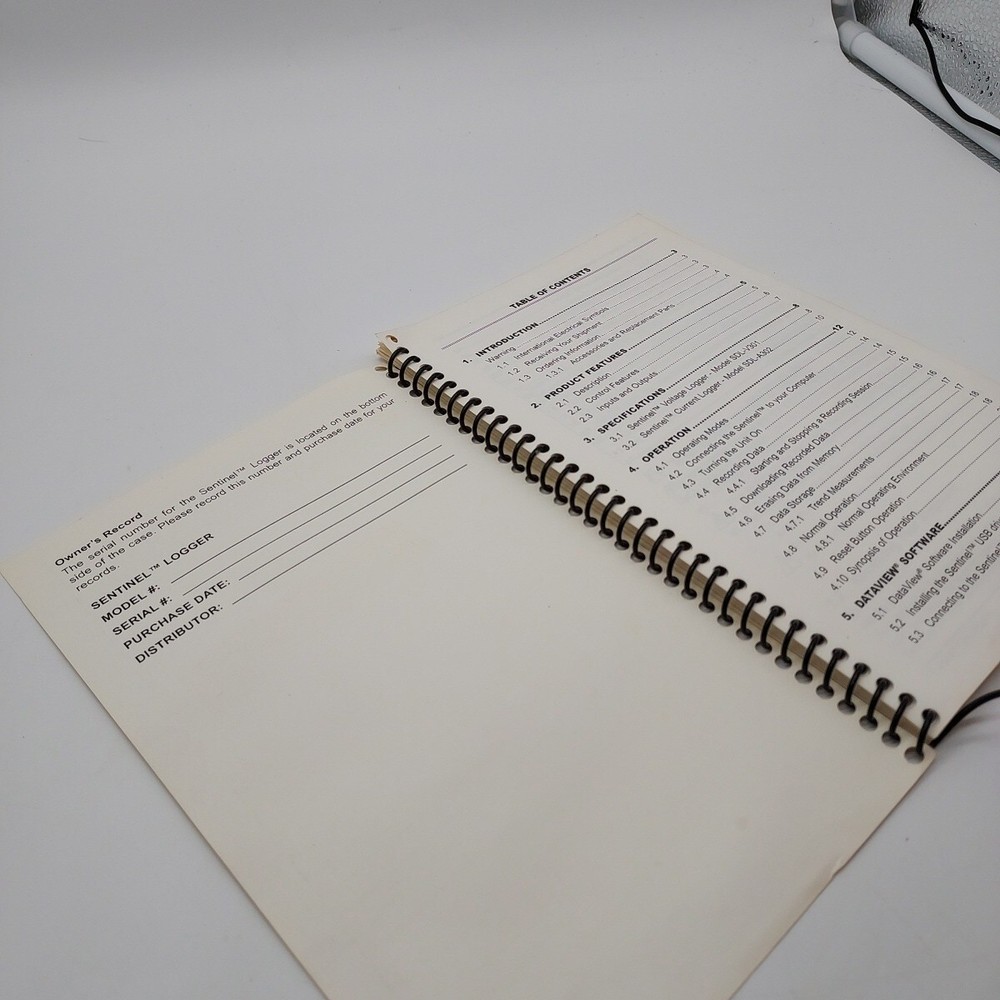 Owner's Record
The serial number for the Sentinel™ Logger is located on the bottom
side of the case. Please record this number and purchase date for your
records.
SENTINEL™ LOGGER
MODEL #:
SERIAL #:
PURCHASE DATE:
DISTRIBUTOR:
TABLE OF CONTENTS
1. INTRODUCTION 3
Warning 3
1.1 International Electrical Symbols 3
1.2 Receiving Your Shipment 3
1.3 Ordering Information 4
1.3.1 Accessories and Replacement Parts 4
2. PRODUCT FEATURES 5
2.1 Description 5
2.2 Control Features 6
2.3 Inputs and Outputs 7
3. SPECIFICATIONS 8
3.1 Sentinel™ Voltage Logger - Model SDL-V301 8
3.2 Sentinel™ Current Logger - Model SDL-A302 10
4. OPERATION 12
4.1 Operating Modes 12
4.2 Connecting the Sentinel™ to your Computer
4.3 Turning the Unit On
4.4 Recording Data
4.4.1 Starting and Stopping a Recording Session
4.5 Downloading Recorded Data
4.6 Erasing Data from Memory
4.7 Data Storage
4.7.1 Trend Measurements
4.8 Normal Operation
4.8.1 Normal Operating Environment
4.9 Reset Button Operation
4.10 Synopsis of Operation
5. DATAVIEW® SOFTWARE
5.1 DataView® Software Installation
5.2 Installing the Sentinel™ USB
5.3 Connecting to the